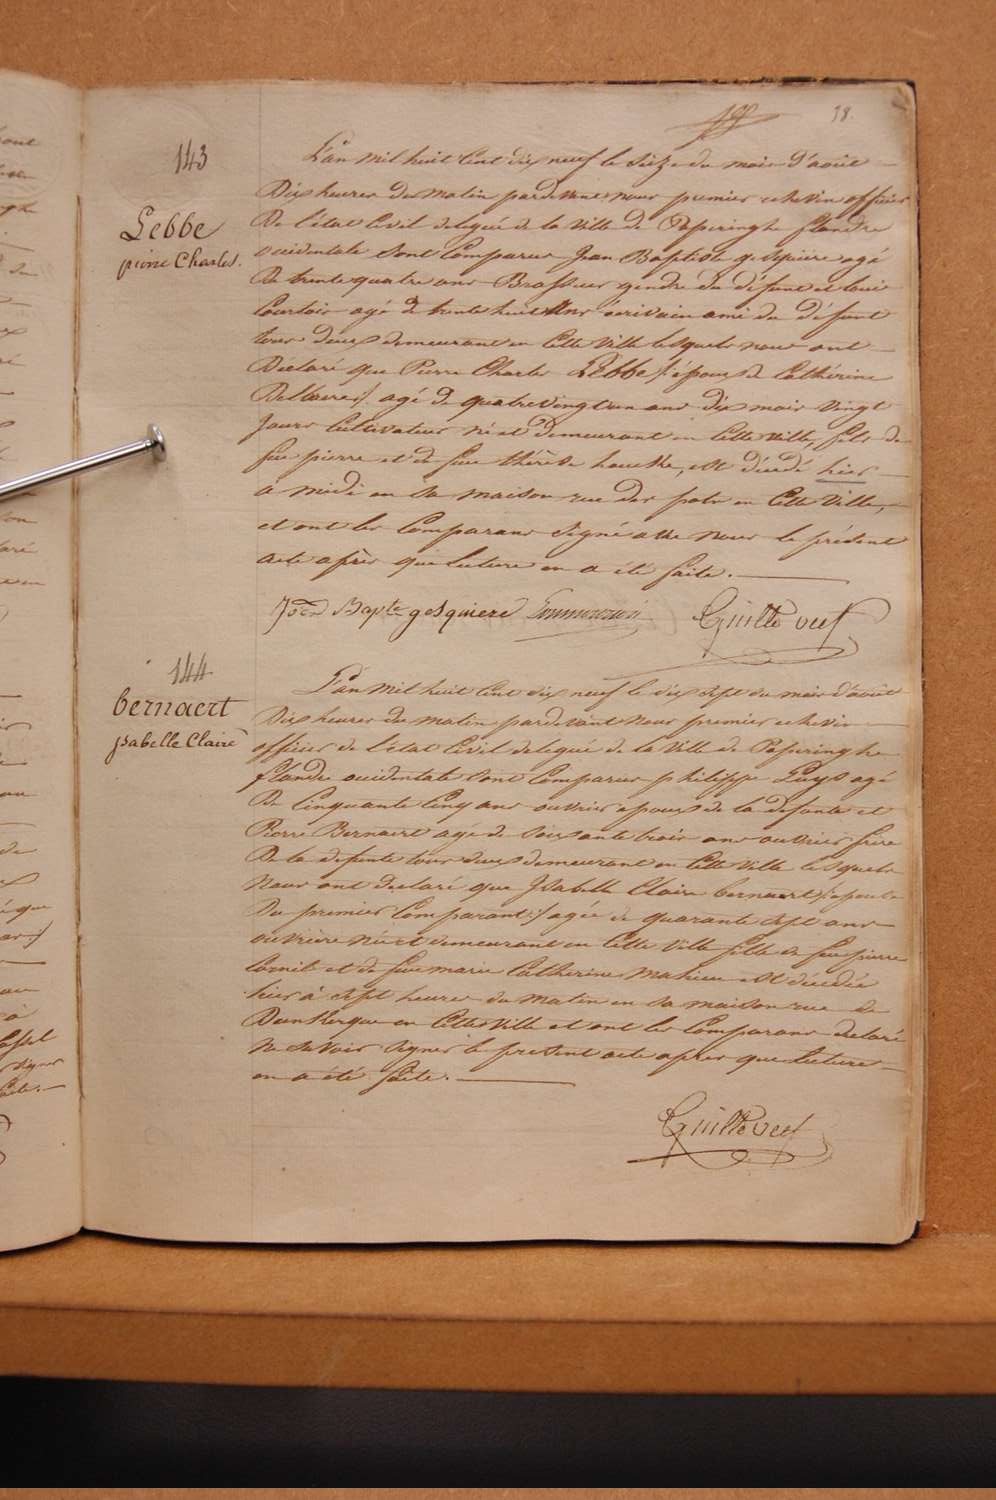 38.
143
Lebbe
pierre Charles.
L'an mil huit Cent dix neuf le Seize du mois d'août
Dix heures du Matin pardevant nous premier echevin officier
De l'état Civil delegué de la Ville de Poperinghe flandre
occidentale Sont Comparus Jean Baptiste gesquiere agé
De trente quatre ans Brasseur gendre du défunt et Louis
Courtois agé de trente huit Ans écrivain ami du défunt
tous deux demeurant en Cette Ville lesquels nous ont
Déclaré que Pierre Charles Lebbe /: époux de Cathérine
:/ agé de quatrevingt un ans dix mois vingt
Jours Cultivateur né et Demeurant en Cette ville, fils de
feu pierre et de feue thérèse , est décédé hier
à midi en sa maison rue des pots en Cette Ville,
et ont les Comparans Signé avec nous le présent
acte après que lecture en a été faite.
Joan Bapte gesquiere
144
bernaert
ysabelle Claire
L'an Mil huit Cent dix neuf le dix Sept du mois d'août
Dix heures du matin pardevant Nous premier echevin
officier de l'état Civil delegué de la Ville de Poperinghe
flandre occidentale Sont Comparus philippe Luys agé
De Cinquante Cinq ans ouvrier epoux de la defunte et
Pierre Bernaert agé de Soixante trois ans ouvrier frere
De la defunte tous deux demeurant en Cette Ville lesquels
Nous ont Declaré que Ysabelle Claire bernaert /: epouse
Du premier Comparant :/ agée de quarante Sept ans
ouvrière née et demeurant en Cette Ville fille de feu pierre
Cornil et de feue marie Catherine Mahieu est décédée
hier à Sept heures du Matin en sa maison rue de
Dunkerque en Cette Ville et ont les Comparans declaré
Ne Savoir Signer le present acte apres que Lecture
en a été faite.